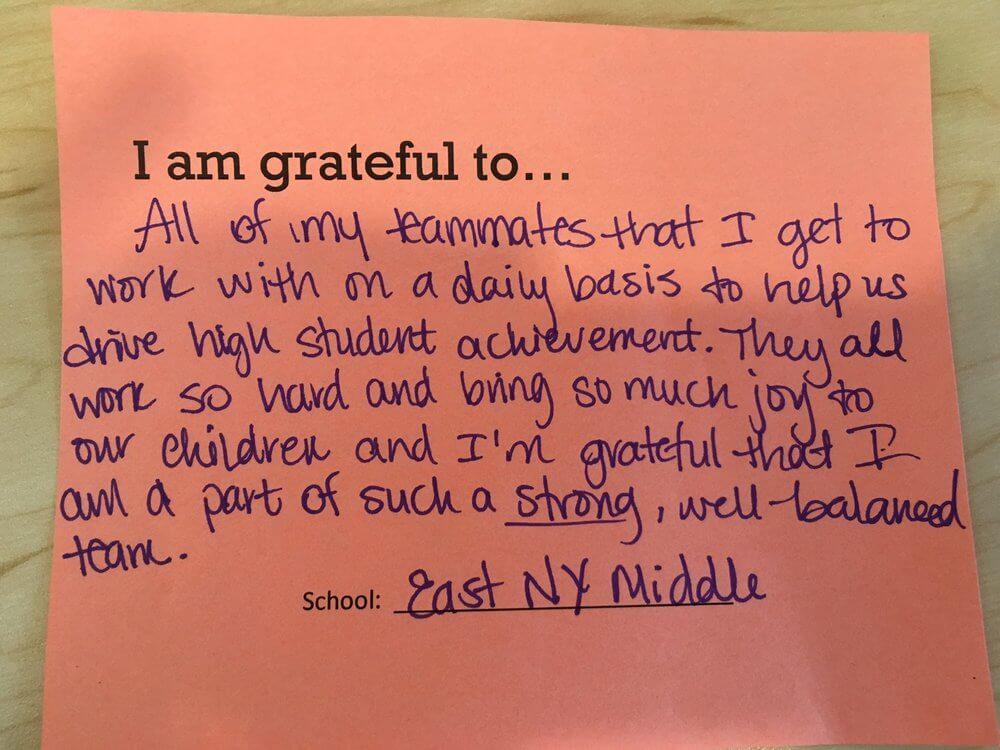 I am grateful to...
All of my teammates that I get to
work with on a daily basis to help us
drive high student achievement. They all
work so hard and bring so much joy to
our children and I'm grateful that I
am a part of such a strong, well-balanced
team.
School: East NY Middle